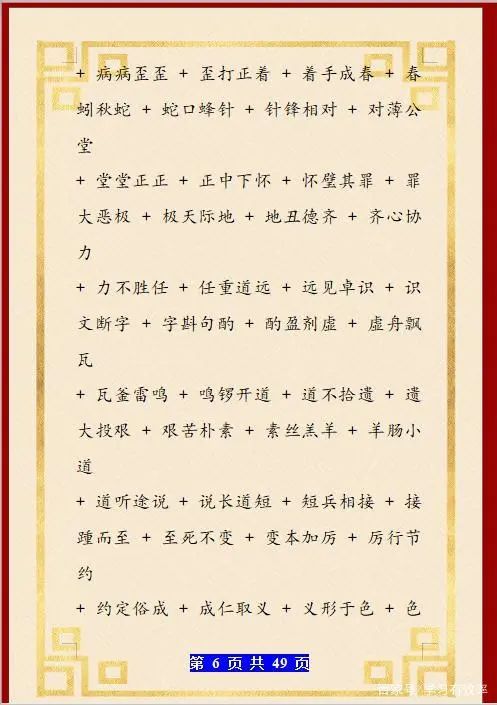 + 病病歪歪 + 歪打正着 + 着手成春 + 春
蚓秋蛇 + 蛇口蜂针 + 针锋相对 + 对薄公
堂
+ 堂堂正正 + 正中下怀 + 怀璧其罪 + 罪
大恶极 + 极天际地 + 地丑德齐 + 齐心协
力
+ 力不胜任 + 任重道远 + 远见卓识 + 识
文断字 + 字斟句酌 + 酌盈剂虚 + 虚舟飘
瓦
+ 瓦釜雷鸣 + 鸣锣开道 + 道不拾遗 + 遗
大投艰 + 艰苦朴素 + 素丝羔羊 + 羊肠小
道
+ 道听途说 + 说长道短 + 短兵相接 + 接
踵而至 + 至死不变 + 变本加厉 + 厉行节
约
+ 约定俗成 + 成仁取义 + 义形于色 + 色
第 6 页 共 49 页
百家号/学习有效率